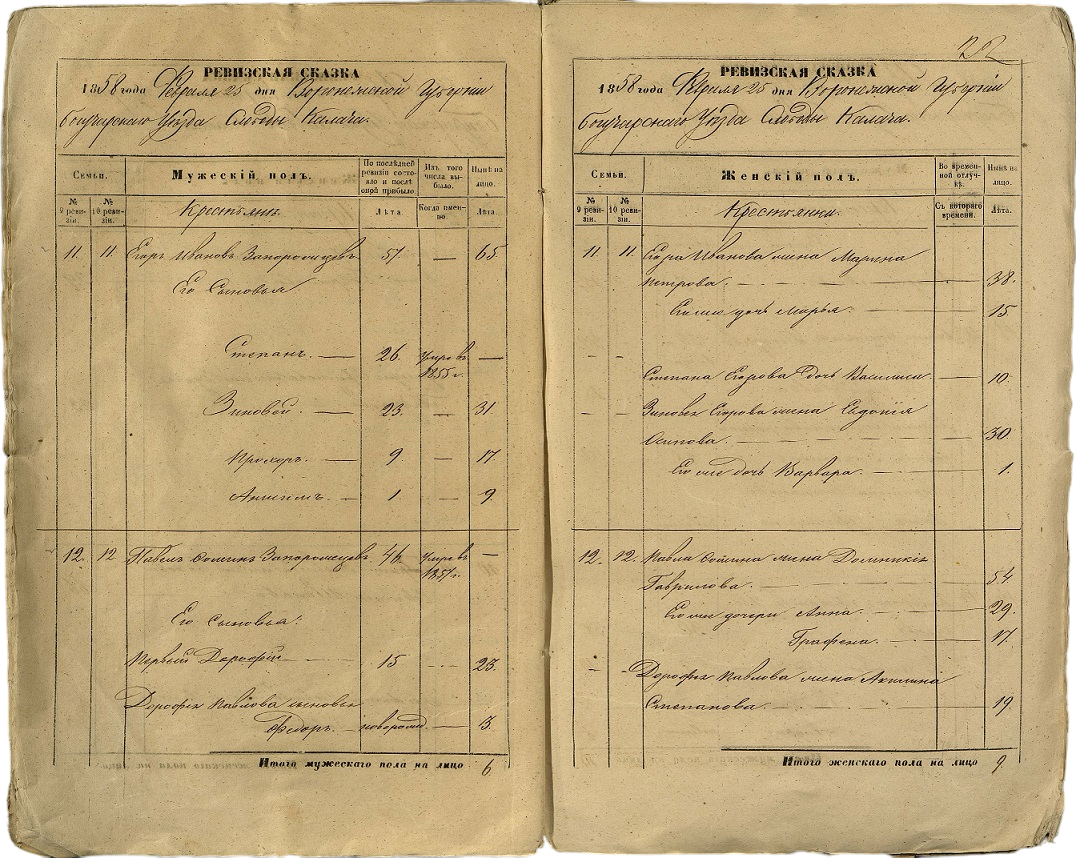 РЕВИЗСКАЯ СКАЗКА
1858 года Февраля 25 дня Воронежской Губерніи
Богучарскаго Уезда Слободы Калача.
Семьи.
Мужескій полъ.
По последней ревизіи состояло и после оной прибыло.
Изъ того числа выбыло.
Ныне на лицо.
№ 9 ревизіи.
№ 10 ревизіи.
Крестьянъ.
Лета.
Когда именно.
Лета.
11. 11. Егоръ Ивановъ Запорожцевъ 57. — 65.
Его Сыновья
Степанъ. — 26. умре въ 1855 г. —
Зиновей. — 23. — 31.
Прохоръ. — 9 — 17.
Акимъ. — 1 — 9.
12. 12 Павелъ Фоминъ Запорожцевъ 46. умре въ 1857 г. —
Его Сыновья:
Первый Дорофей 15 23.
Дорофея Павлова сыновья
Федоръ. — новорожд. — 3.
Итого мужескаго пола на лицо 6.
22
РЕВИЗСКАЯ СКАЗКА
1858 года Февраля 25 дня Воронежской Губерніи
Богучарскаго Уезда Слободы Калача.
Семьи.
Женскій полъ.
Во временной отлучке.
Ныне на лицо.
№ 9 ревизіи.
№ 10 ревизіи.
Крестьянки.
Съ котораго времени.
Лета.
11. 11. Егора Иванова жена Марьяна
Петрова. — 38.
Его же дочь Марья. — 15
Степана Егорова дочь Василиса — 10.
Зиновея Егорова жена Евдокія
Осипова. — 30.
Его же дочь Варвара. — 1.
12. 12. Павла Фомина жена Домникія
Гаврилова. — 54.
Его же дочери Анна. — 29.
Графена. — 17
Дорофея Павлова жена Акилина
Степанова. — 19
Итого женскаго пола на лицо 9